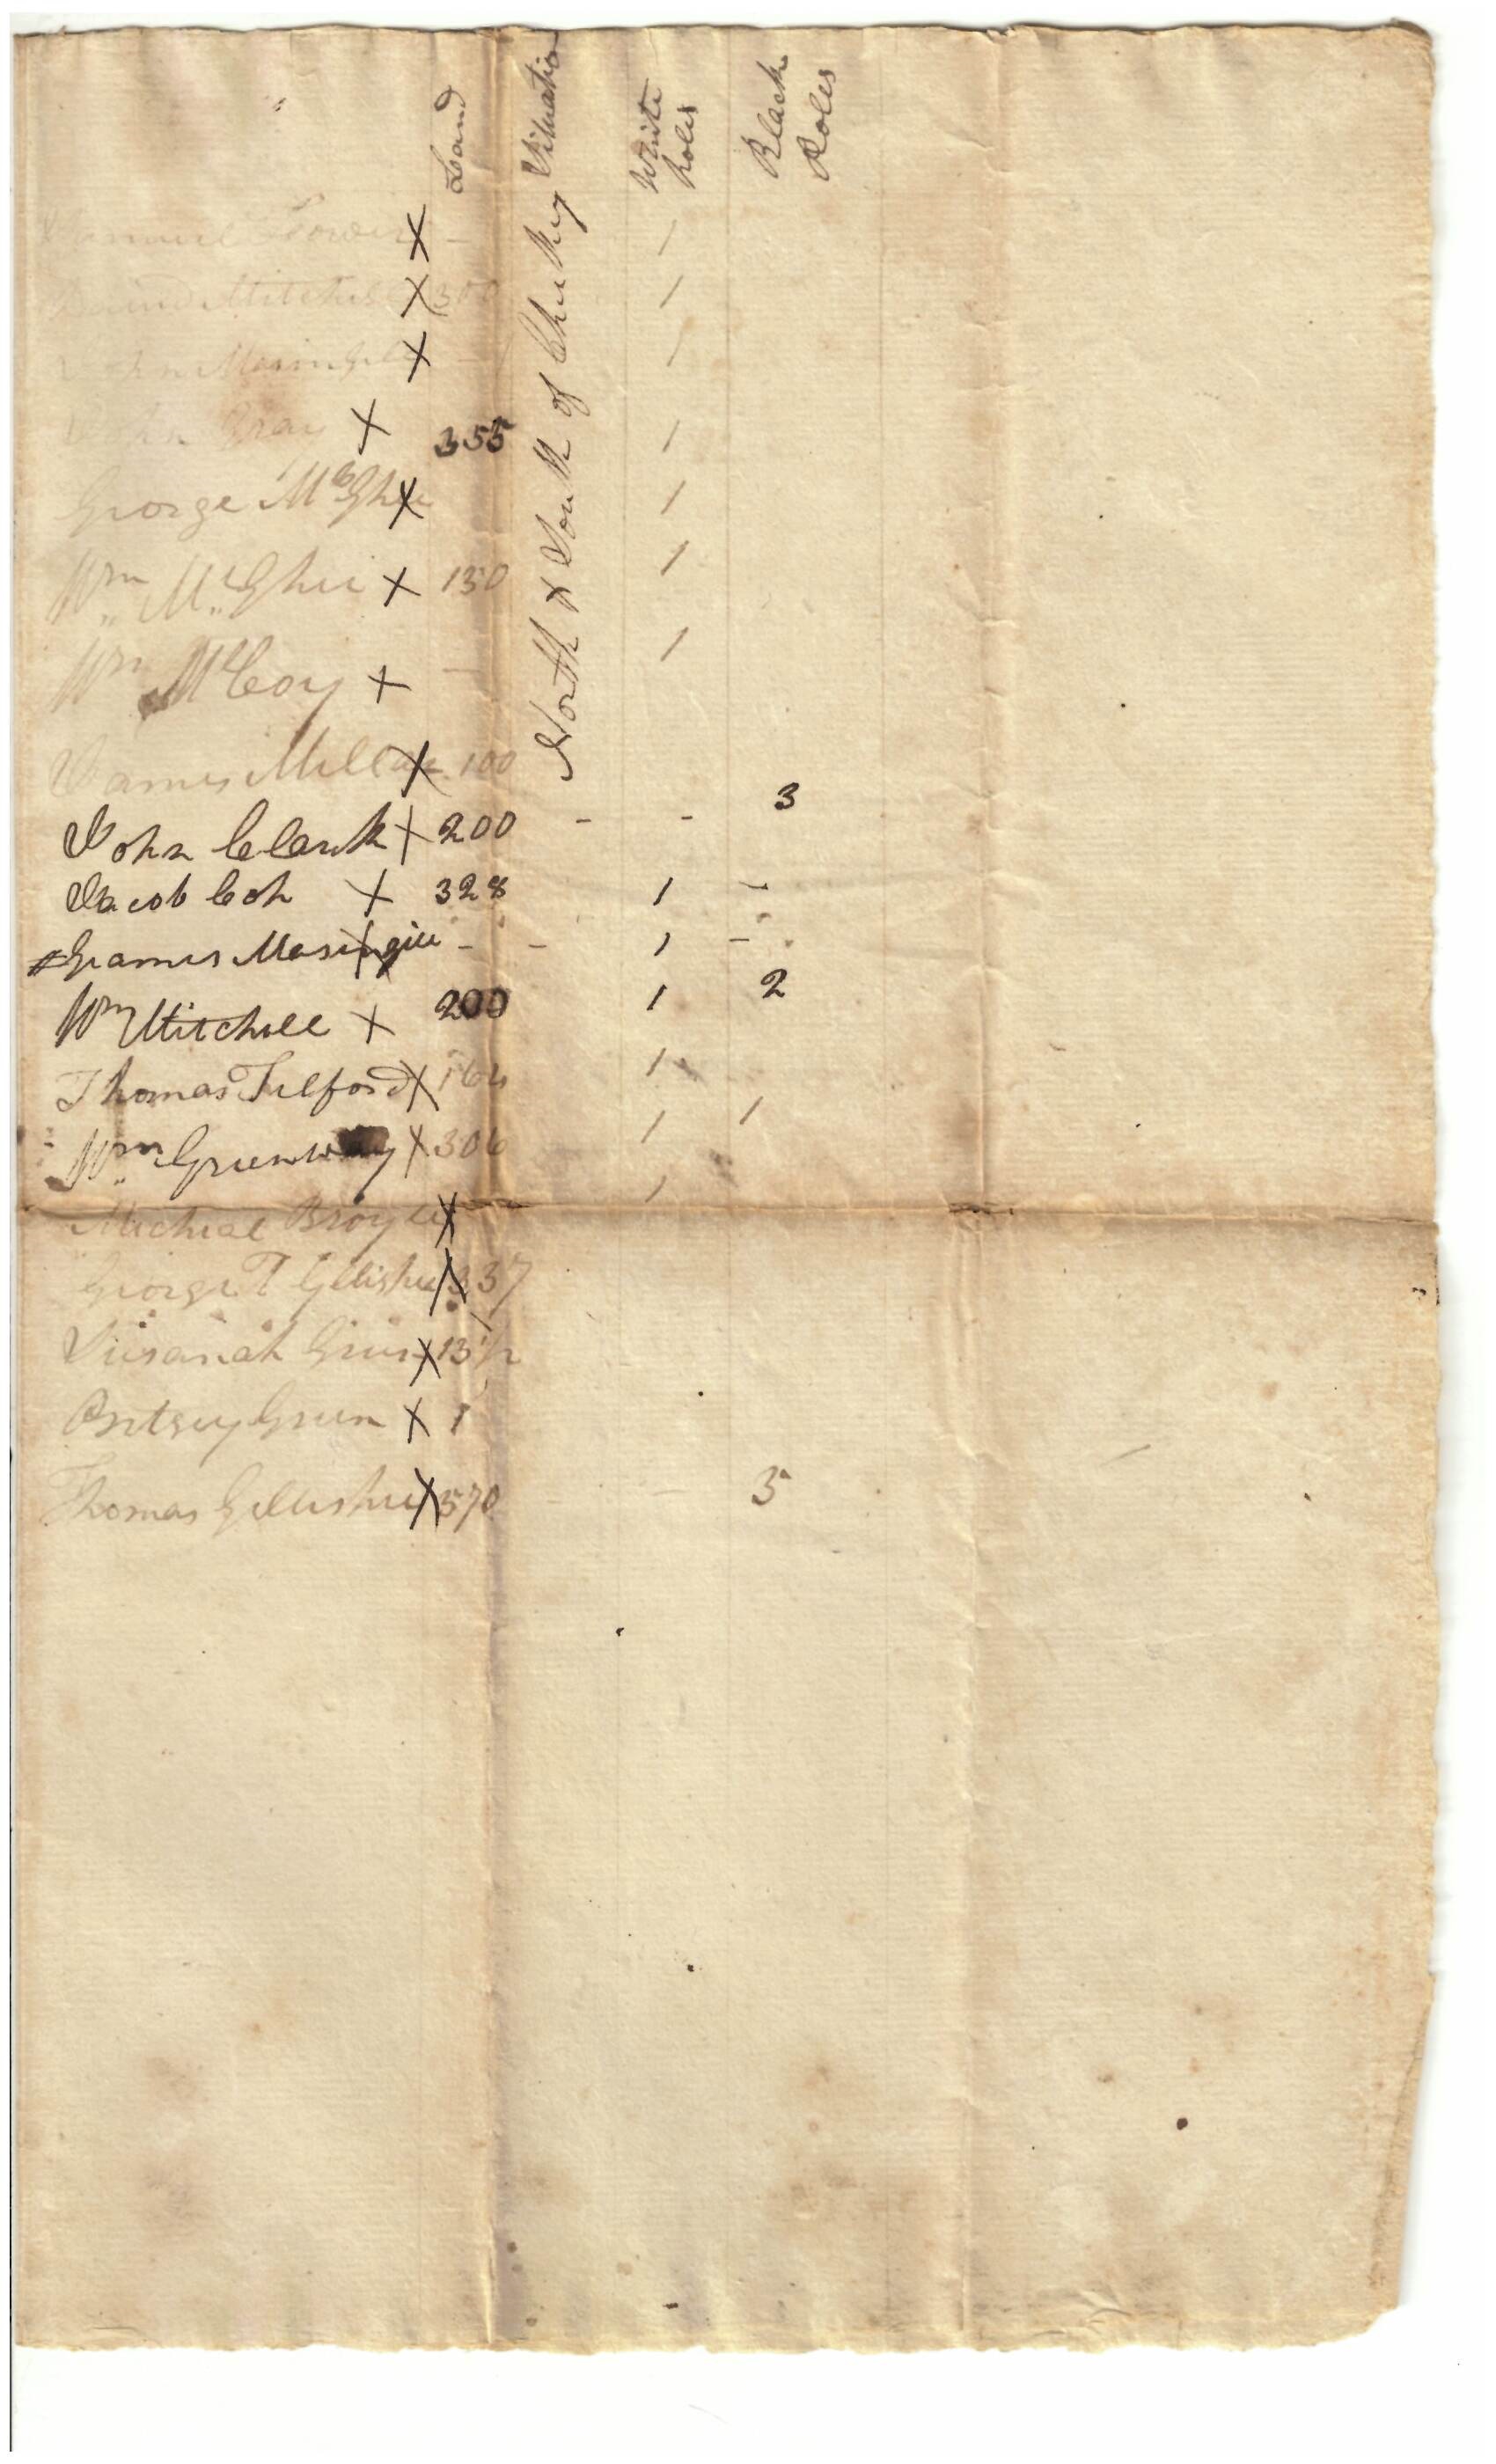 Land Situation White Poles Black Poles
North & South of Chuckey
Samuel X - 1
David Mitchel X 300 1
John Masingil X - 1
John Gray X 355 1
George McGhee X 1
Wm McGhee X 150 1
Wm McCoy X - 1
James Miller X 100
John Clark X 200 - - 3
Jacob Coh X 328 1 -
James Masingill X - - 1 -
Wm Mitchell X 200 1 2
Thomas Telford X 164 1
Wm Greenway X 306 1 1
Michael Broyles X 1
George T Gillespie X 337
Susanah Green X 13 1/2
Betsey Green X 1
Thomas Gillespie X 570 - - 5